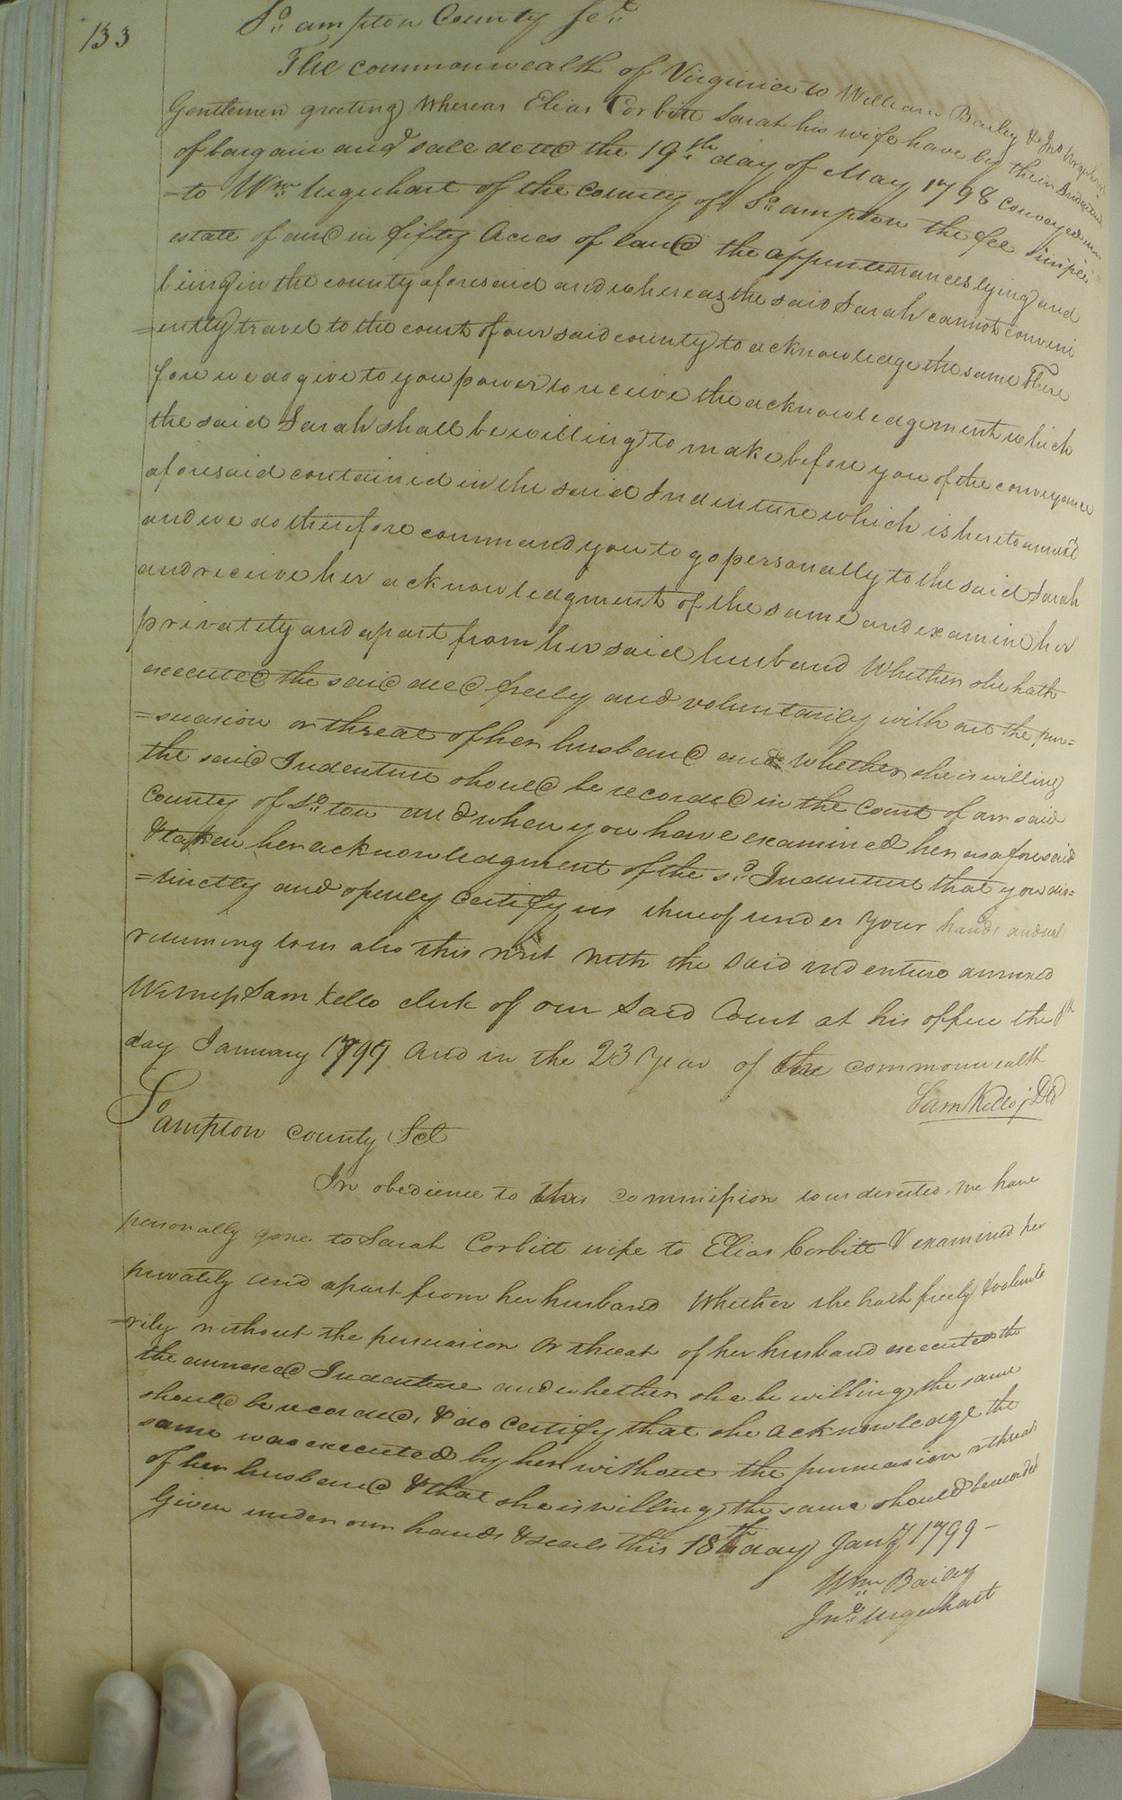 133
So. ampton County Sct.
The commonwealth of Virginia to William Bailey & Jno Urquhart
Gentlemen greeting Whereas Elias Corbitt Sarah his wife have by their Indenture
of bargain and sale dated the 19th day of May 1798 conveyed
=to Wm Urquhart of the county of So. ampton the fee simple
estate of and in fifty Acres of land the appurtenances lying and
being in the county aforesaid and whereas the said Sarah cannot conveni
=ently travel to the court of our said county to acknowledge the same There
fore we do give to you power to receive the acknowledgement which
the said Sarah shall be willing to make before you of the conveyance
aforesaid contained in the said Indenture which is hereto annexd
and we do therefore command you to go personally to the said Sarah
and receive her acknowledgment of the same and examine her
privately and apart from her said husband Whether she hath
executed the said deed freely and voluntarily with out the pur=
=suasion or threat of her husband and whether she is willing
the said Indenture should be recorded in the Court of our said
County of So. ton and when you have examined her as aforesaid
& taken her acknowledgment of the sd. Indenture that you dis=
=tinctly and openly Certify us thereof under your hands and seal
returning to us also this writ with the said indenture annexed
Witness Sam Kello clerk of our said Court at his office the
day January 1799 and in the 23 Year of the commonwealth
Sam Kello j DC
Sampton county Sct
In obedience to this commission to us directed, we have
personally gone to Sarah Corbitt wife to Elias Corbitt & examined her
privately and apart from her husband Whether she hath freely & volunta
=rily without the persuasion or threat of her husband executed the
the annexed Indenture and whether she be willing the same
should be recorded, & do Certify that she acknowledge the
same was executed by her without the persuasion or threat
of her husband & that she is willing the same should be recorded
Given under our hands & seals this 18th day Jany 1799-
Wm Bailey
Jno. Urquhart